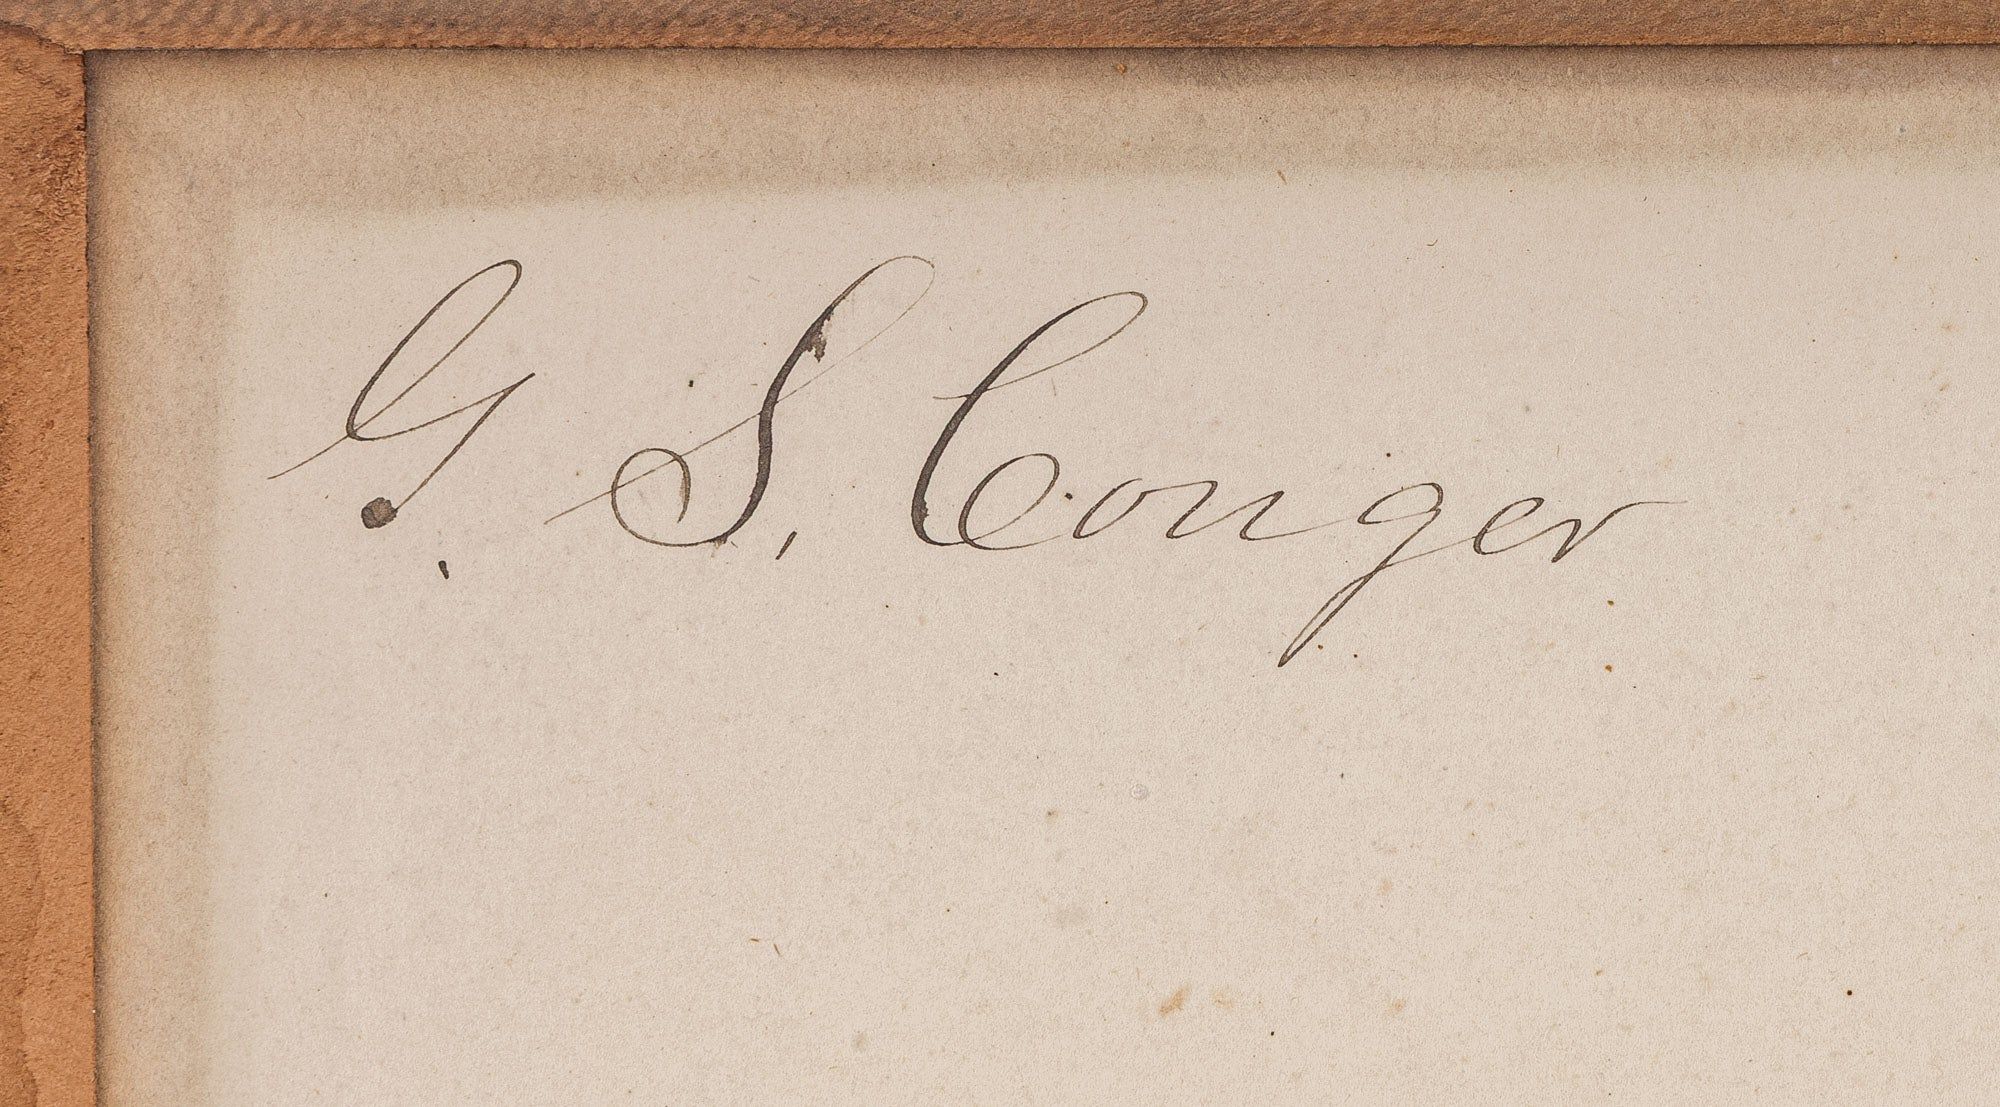 G. S. Conger